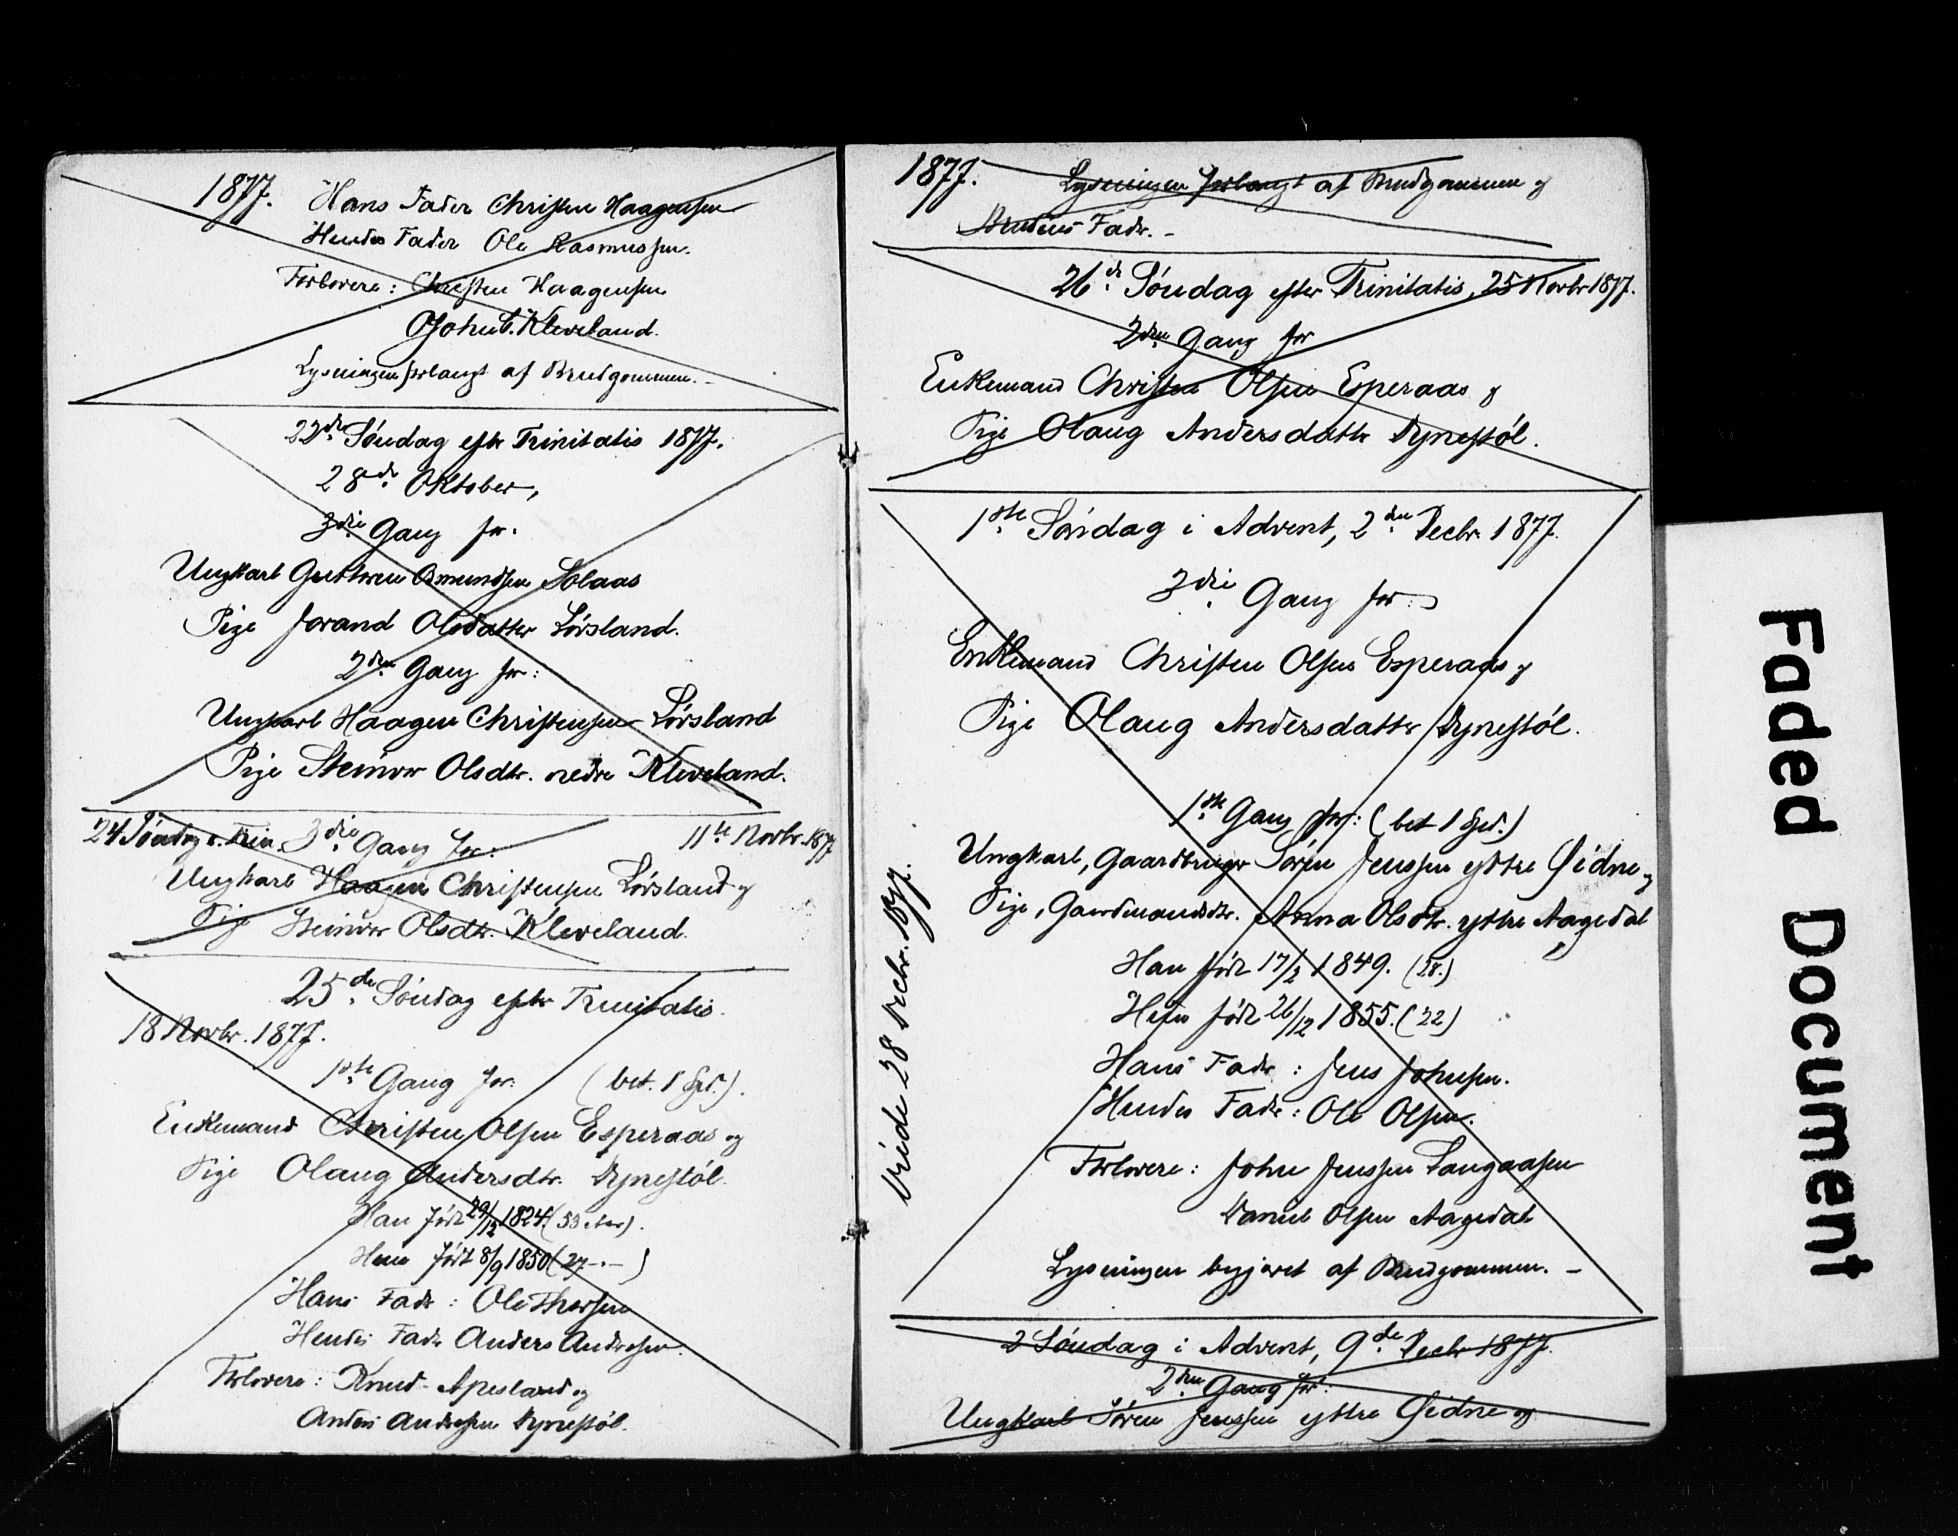 1877. Hans Fader Christen Haagensen
Hendes Fader Ole Rasmussen.
Forlovere: Christen Haagensen
John Kleveland.
Lysningen forlangt af Brudgommen. -
22de Søndag efter Trinitatis 1877.
28de Oktober,
3die Gang for.
Ungkarl Guttorm Osmundsen Solaas
Pige Jorand Olsdatter Lørsland.
2den Gang for:
Ungkarl Haagen Christensen Lørsland
Pige Steinvor Olsdtr. nedre Kleveland.
24 Søndag e. Trin. 3die Gang for: 11te Novbr. 1877
Ungkarl Haagen Christensen Lørsland og
Pige Steinvor Olsdtr. Kleveland.
25de Søndag efter Trinitatis.
18 Novbr. 1877.
1ste Gang for: (bet. 1 Spd.).
Enkemand Christen Olsen Esperaas og
Pige Olaug Andersdtr. Dynestøl.
Han født 29/12 1824. (53 Aar).
Hun født 8/9 1850 (27 -.-)
Hans Fader: Ole Thorsen
Hendes Fader Anders Andersen.
Forlovere: Knud Apesland og
Anders Andersen Dynestøl.
1877. Lysningen forlangt af Brudgommen og
Brudens Fader. -
26de Søndag efter Trinitatis, 25 Novbr 1877.
2den Gang for
Enkemand Christen Olsen Esperaas og
Pige Olaug Andersdatter Dynestøl.
1ste Søndag i Advent, 2den Decbr. 1877.
3die Gang for:
Enkemand Christen Olsen Esperaas og
Pige Olaug Andersdatter Dynestøl.
1ste Gang for: (bet 1 Spd.)
Ungkarl, Gaardbruger Søren Jenssen ystre Øidne og
Pige, Gaardmandsdtr. Anna Olsdtr. ystre Aagedal
Han født 17/2 1849. (28.)
Hun født 26/12 1855. (22)
Hans Fader: Jens Johnsen.
Hendes Fader: Ole Olsen.
Forlovere: John Jenssen Langaasen
Daniel Olsen Aagedal
Lysningen begjæret af Brudgommen. -
Viede 28 Decbr. 1877.
2 Søndag i Advent, 9de Decbr 1877.
2den Gang for:
Ungkarl Søren Jenssen ystre Øidne og
Faded Document